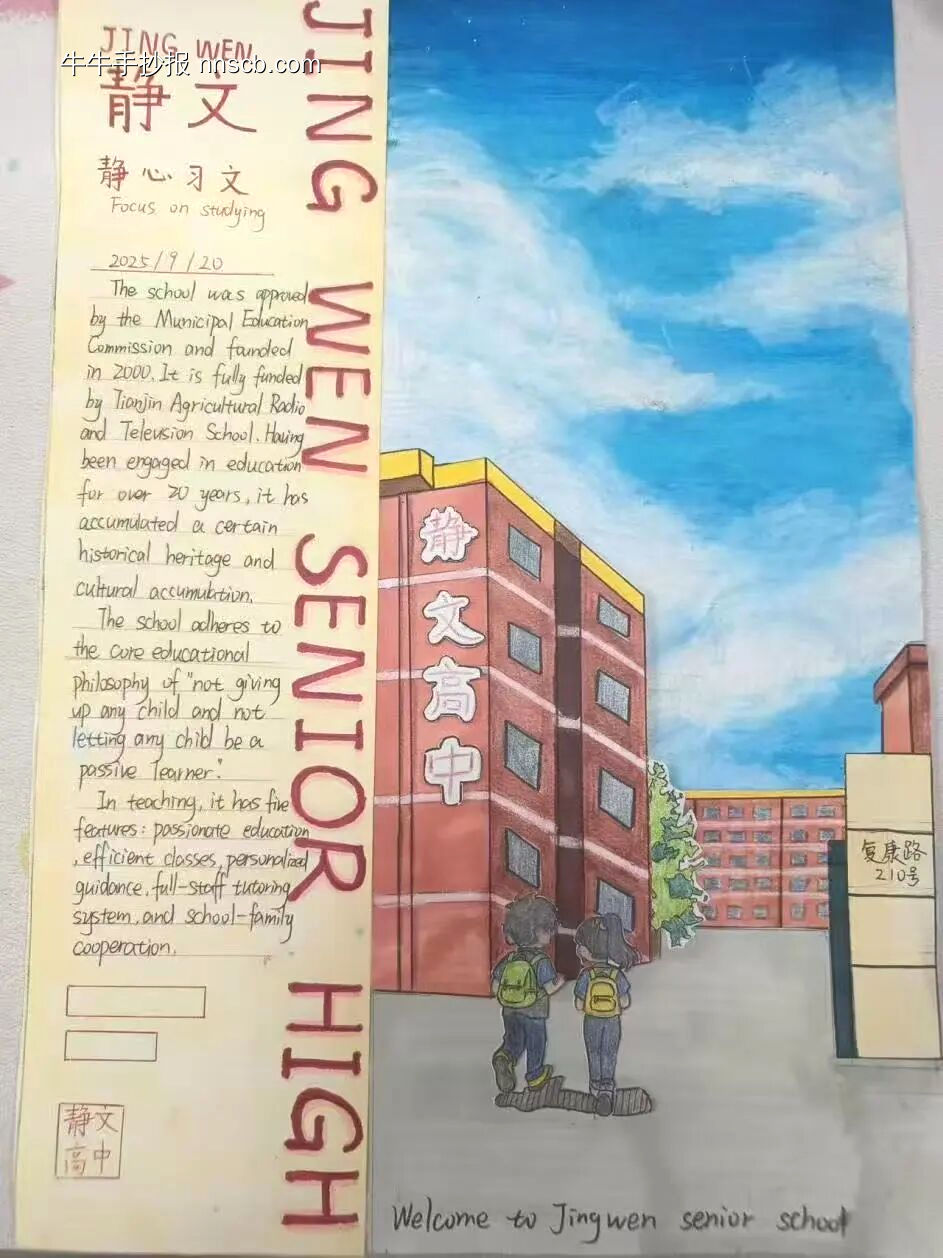 JING WEN
牛牛手抄报 nnscb.com
静文
静心习文
Focus on studying
2025/9/20
The school was approved
by the Municipal Education
Commission and founded
in 2000. It is fully funded
by Tianjin Agricultural Radio
and Television School. Having
been engaged in education
for over 20 years, it has
accumulated a certain
historical heritage and
cultural accumulation.
The school adheres to
the core educational
philosophy of "not giving
up any child and not
letting any child be a
passive learner."
In teaching, it has five
features: passionate education
, efficient classes, personalized
guidance, full-staff tutoring
system, and school-family
cooperation.
静文
高中
JING WEN SENIOR HIGH
静文高中
复康路
210号
Welcome to Jingwen senior school